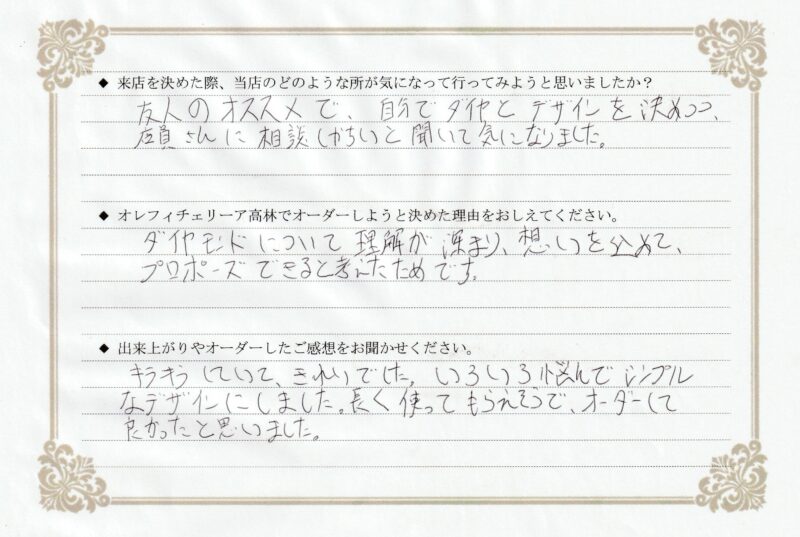 ◆ 来店を決めた際、当店のどのような所が気になって行ってみようと思いましたか？
友人のオススメで、自分でダイヤとデザインを決めつつ、
店員さんに相談しがちいと聞いて気になりました。
◆ オレフィチェリーア高林でオーダーしようと決めた理由をおしえてください。
ダイヤモンドについて理解が深まり、想いを込めて、
プロポーズできると考えたためです。
◆ 出来上がりやオーダーしたご感想をお聞かせください。
キラキラしていて、きれいでした。いろいろ悩んでシンプル
なデザインにしました。長く使ってもらえそうで、オーダーして
良かったと思いました。